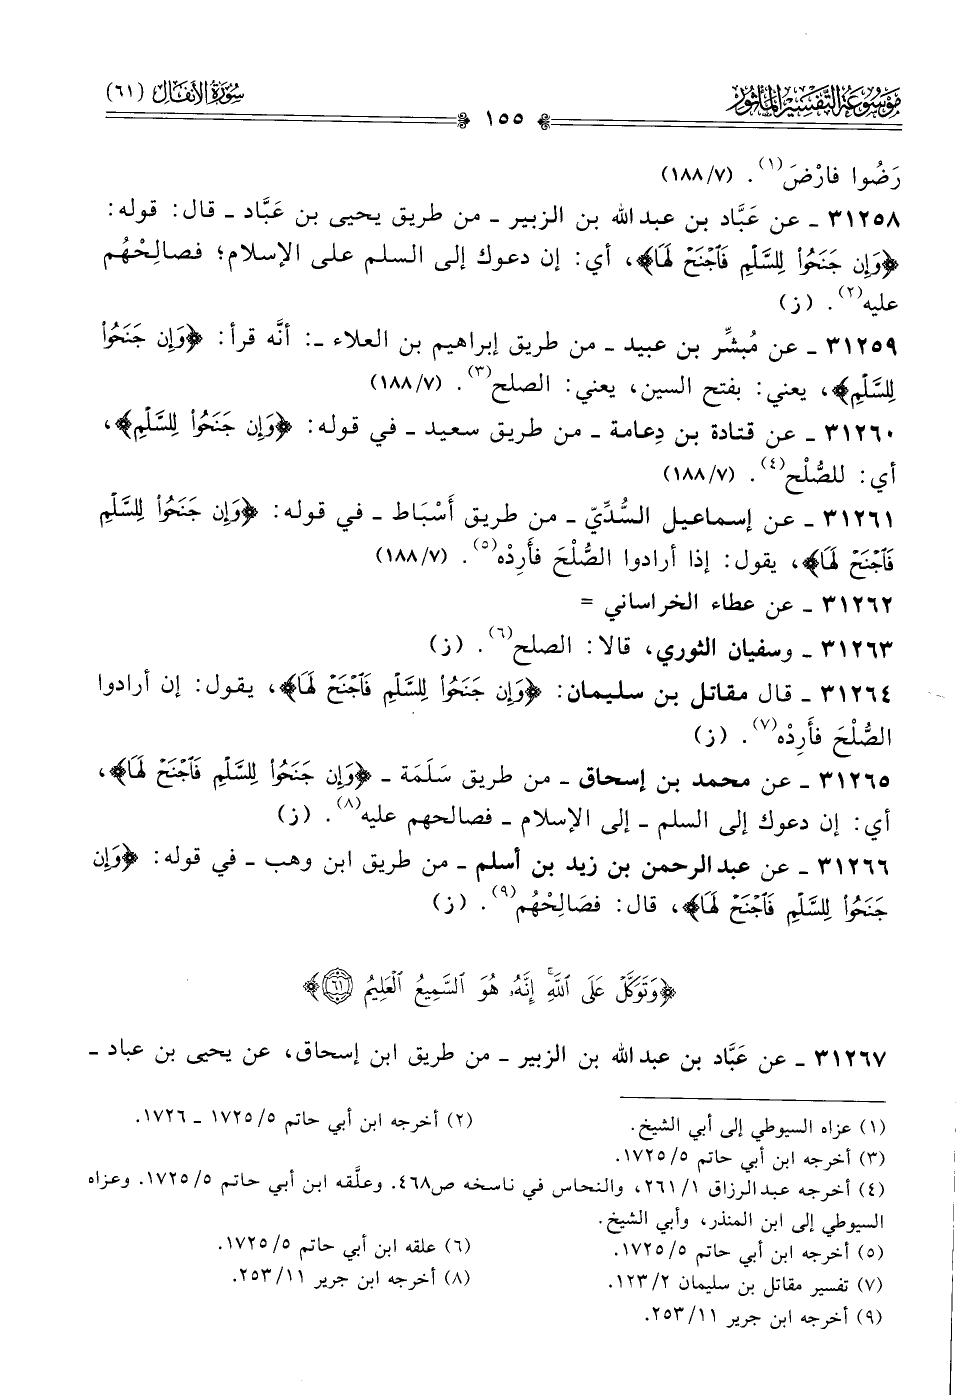 موسوعة التفسير المأثور
سورة الأنفال (٦١)
١٥٥
رَضُوا فارْضَ(١). (١٨٨/٧)
٣١٢٥٨ ـ عن عَبَّاد بن عبدالله بن الزبير ـ من طريق يحيى بن عَبَّاد ـ قال: قوله:
﴿وَإِن جَنَحُواْ لِلسَّلۡمِ فَٱجۡنَحۡ لَهَا﴾، أي: إن دعوك إلى السلم على الإسلام؛ فصالِحْهُم
عليه(٢). (ز)
٣١٢٥٩ ـ عن مُبشِّر بن عبيد ـ من طريق إبراهيم بن العلاء ـ: أنَّه قرأ: ﴿وَإِن جَنَحُواْ
لِلسَّلۡمِ﴾، يعني: بفتح السين، يعني: الصلح(٣). (١٨٨/٧)
٣١٢٦٠ ـ عن قتادة بن دِعامة ـ من طريق سعيد ـ في قوله: ﴿وَإِن جَنَحُواْ لِلسَّلۡمِ﴾،
أي: للصُّلْح(٤). (١٨٨/٧)
٣١٢٦١ ـ عن إسماعيل السُّدِّيّ ـ من طريق أَسْبَاط ـ في قوله: ﴿وَإِن جَنَحُواْ لِلسَّلۡمِ
فَٱجۡنَحۡ لَهَا﴾، يقول: إذا أرادوا الصُّلْحَ فأَرِدْه(٥). (١٨٨/٧)
٣١٢٦٢ ـ عن عطاء الخراساني =
٣١٢٦٣ ـ وسفيان الثوري، قالا: الصلح(٦). (ز)
٣١٢٦٤ ـ قال مقاتل بن سليمان: ﴿وَإِن جَنَحُواْ لِلسَّلۡمِ فَٱجۡنَحۡ لَهَا﴾، يقول: إن أرادوا
الصُّلْحَ فأَرِدْه(٧). (ز)
٣١٢٦٥ ـ عن محمد بن إسحاق ـ من طريق سَلَمَة ـ ﴿وَإِن جَنَحُواْ لِلسَّلۡمِ فَٱجۡنَحۡ لَهَا﴾،
أي: إن دعوك إلى السلم ـ إلى الإسلام ـ فصالحهم عليه(٨). (ز)
٣١٢٦٦ ـ عن عبدالرحمن بن زيد بن أسلم ـ من طريق ابن وهب ـ في قوله: ﴿وَإِن
جَنَحُواْ لِلسَّلۡمِ فَٱجۡنَحۡ لَهَا﴾، قال: فصَالِحْهُم(٩). (ز)
﴿وَتَوَكَّلۡ عَلَى ٱللَّهِۚ إِنَّهُۥ هُوَ ٱلسَّمِيعُ ٱلۡعَلِيمُ ٦١﴾
٣١٢٦٧ ـ عن عَبَّاد بن عبدالله بن الزبير ـ من طريق ابن إسحاق، عن يحيى بن عباد ـ
(١) عزاه السيوطي إلى أبي الشيخ.
(٢) أخرجه ابن أبي حاتم ١٧٢٥/٥ ـ ١٧٢٦.
(٣) أخرجه ابن أبي حاتم ١٧٢٥/٥.
(٤) أخرجه عبدالرزاق ٢٦١/١، والنحاس في ناسخه ص٤٦٨. وعلَّقه ابن أبي حاتم ١٧٢٥/٥. وعزاه
السيوطي إلى ابن المنذر، وأبي الشيخ.
(٥) أخرجه ابن أبي حاتم ١٧٢٥/٥.
(٦) علقه ابن أبي حاتم ١٧٢٥/٥.
(٧) تفسير مقاتل بن سليمان ١٢٣/٢.
(٨) أخرجه ابن جرير ٢٥٣/١١.
(٩) أخرجه ابن جرير ٢٥٣/١١.